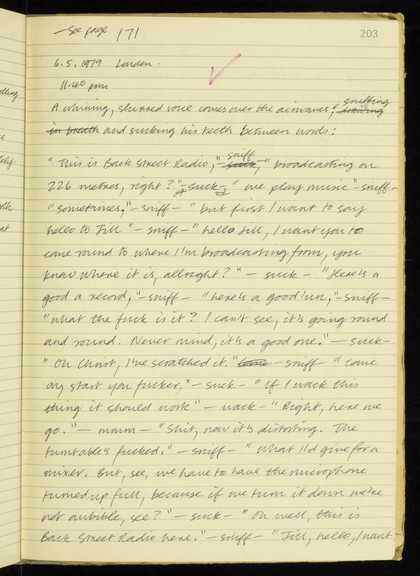 — See page 171
203
6.5.1979 London.
11.40 pm.
A whining, slurred voice comes over the airwaves, sniffing drawing
in breath and sucking his teeth between words:
"This is Back Street Radio," – sniff –, "broadcasting on
226 metres, right?" – suck – "we play music" – sniff –
"sometimes," – sniff – "but first I want to say
hello to Jill" – sniff – "hello Jill, I want you to
come round to where I'm broadcasting from, you
know where it is, allright?" – suck – "Here's a
good a record," – sniff – "here's a good 'un," – sniff –
"what the fuck is it? I can't see, it's going round
and round. Never mind, it's a good one." – suck –
"Oh Christ, I've scratched it." – sniff – "come
on, start you fucker," – suck – "If I wack this
thing it should work" – wack – "Right, here we
go." – – "Shit, now it's distorting. The
turntable's fucked." – sniff – "What I'd give for a
mixer. But, see, we have to have the microphone
turned up full, because if we turn it down we're
not audible, see?" – suck – "Oh well, this is
Back Street Radio here." – sniff – "Jill, hello, I want